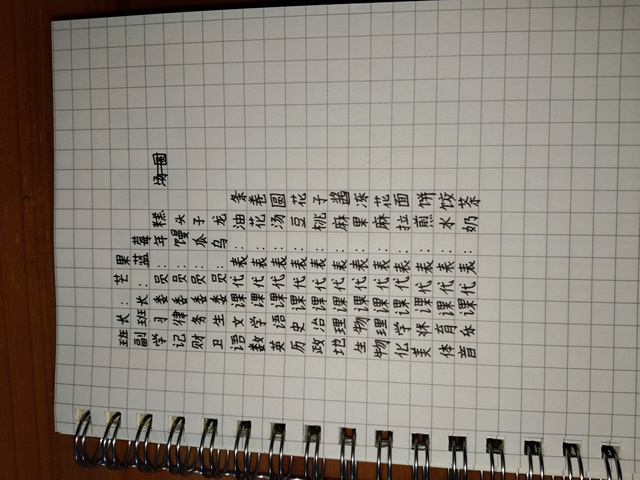 班长：芒果
副班长：蓝莓
学习委员：年糕 汤圆
记律委员：馒头
财务委员：瓜子
卫生委员：乌龙
语文课代表：油条
数学课代表：花卷
英语课代表：汤圆
历史课代表：豆花
政治课代表：桃子
地理课代表：麻酱
生物课代表：果冻
物理课代表：麻花
化学课代表：拉面
美术课代表：煎饼
体育课代表：水饺
音乐课代表：奶茶